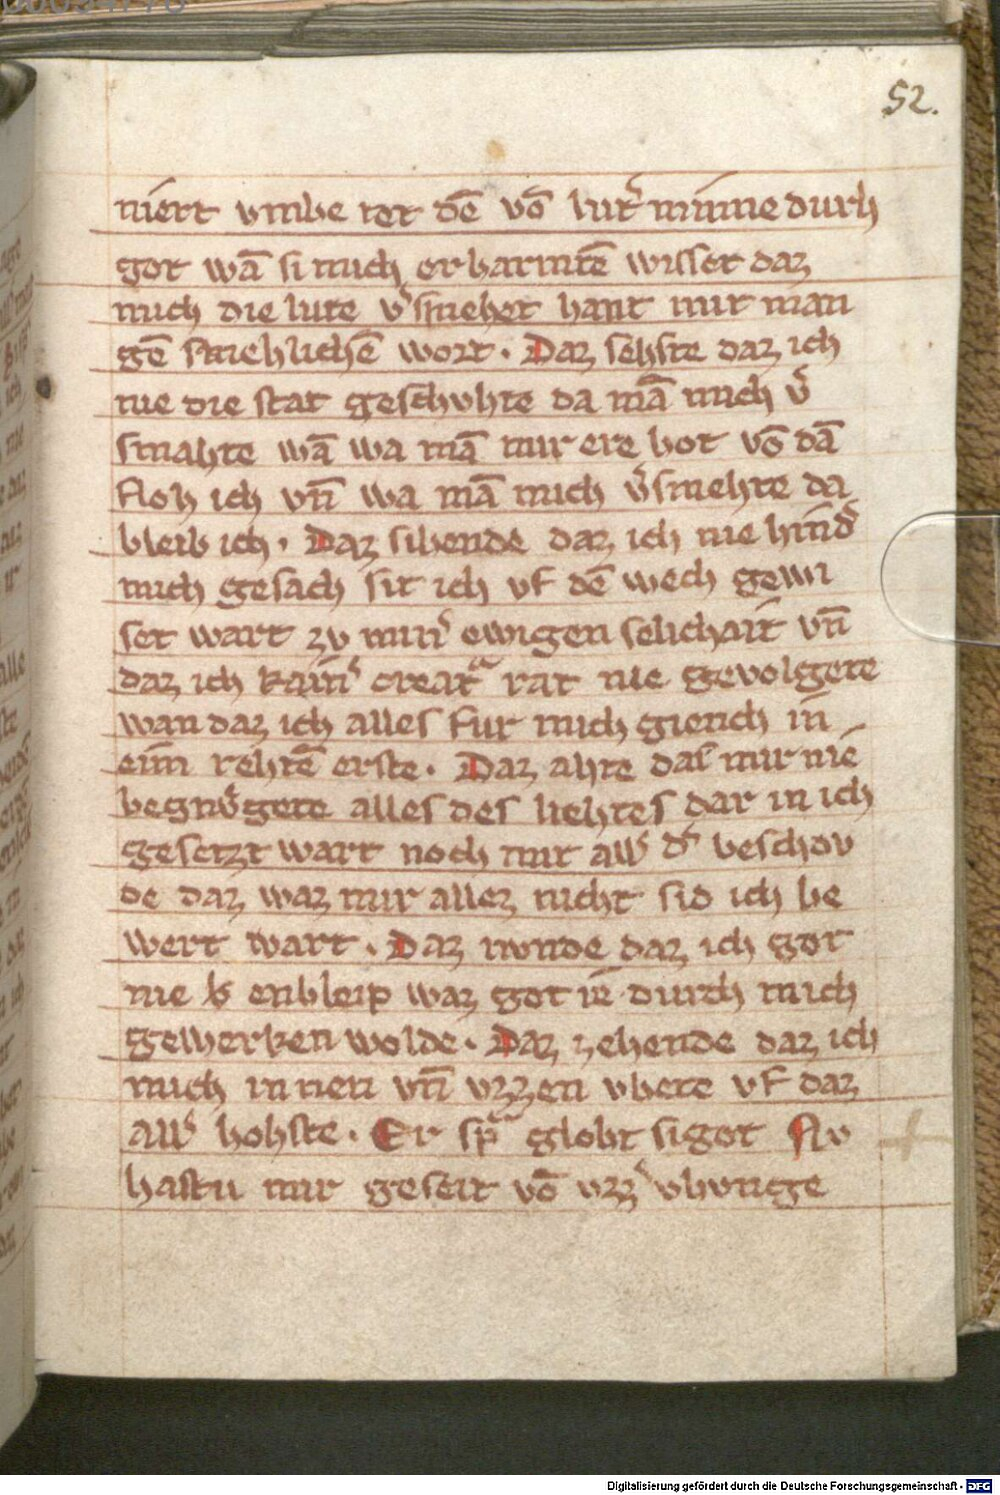 52.
niert vmbe ret dē vō lutʼ minne durh
got wā si mich erbarmtē wisset daz
mich die lute vʼsmehet hant mit man
gē smehlichē wort. Daz sehste daz ich
nie die stat geschvhte da mā mich vʼ
smahte wā wa mā mir ere bot vō dā
floh ich vn̄ wa mā mich vʼsmehte da
bleib ich. Daz sibende daz ich nie hindʼ
mich gesach sit ich vf dē wech gewi
set wart zv minʼ ewigen selichait vn̄
daz ich kainʼ creatͣ rat nie gevolgete
wan daz ich alles fur mich giench in
eim rehtē erste. Daz ahte das mir nie
begnvͦgete alles des liehtes dar in ich
gesetzt wart noch mit allʼ dʼ beschov
de daz waz mir allez nicht sid ich be
wert wart. Daz nvnde daz ich got
nie enbleip waz got ie durch mich
gewerken wolde. Daz zehende daz ich
mich innen vn̄ vzzen vbete vf daz
allʼ hohste. Er spͣ globt si got Nv
hastu mir geseit vō vzzʼ vbvnge
Digitalisierung gefördert durch die Deutsche Forschungsgemeinschaft - DFG